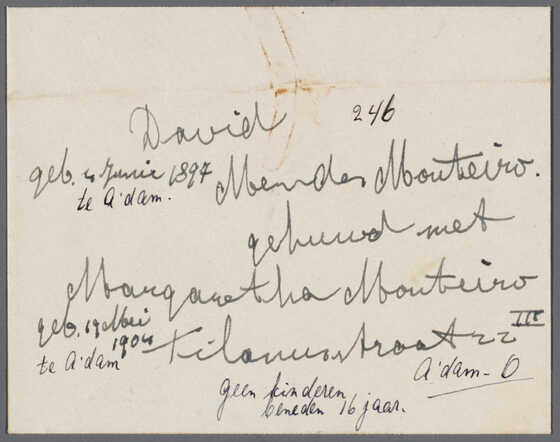 David 246
geb. 4 Junie 1897 Mendes Monteiro.
te A'dam.
gehuwd met
Margaretha Monteiro
geb. 19 Mei
1904 Tilanusstraat 22 III
te A'dam
A'dam - O
geen kinderen
beneden 16 jaar.